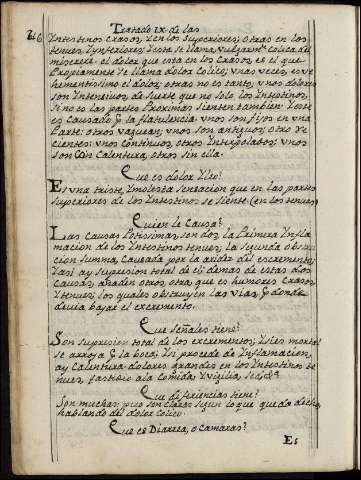 246
Tratado IX de las
Yntestinos Crasos, y en los superiores; otros en los
tenues, ynferiores; y este se llama vulgarmte. colica del
miserere. el dolor que esta en los Crasos, es el que
Propiamente se llama dolor Colico; unas veces, es ve-
hementissimo el dolor; otras no es tanto, unos dolores
son Yntensivos, de suerte que no solo los Yntestinos,
si no es las partes Proximas sienten tambien. Y este
es causado de la flatulencia: unos son fixos en una
Parte: otros vaguean; unos son antiguos, otro re-
cientes: unos continuos, otros Ynterpolados: unos
son con Calentura, otros sin ella.
Que es dolor Yleo?
Es una triste, y molesta sensacion que en las partes
superiores de los Yntestinos se siente (en los tenues)
Quien le Causa?
Las Causas Potissimas, son dos, la Primera Ynfla-
macion de los Yntestinos tenues; la segunda obstru-
cion summa, Causada por la aridez del excremento;
Y asi ay supresion total de el; demas de estas dos
Causas, añaden otros, otra, que es humores Crasos
Y tenues; los quales obstruyen las vias, por donde
devia bajar el excremento.
Que señales tiene?
Son supresion total de los excrementos; Y si es mortal
se arroja por la boca; Y si procede de Ynflamacion,
ay Calentura dolores grandes en los Yntestinos te-
nues, fastidio a la Comida, Y vigilia, sed &.
Que diferencias tiene?
Son muchas, pero son claras segun lo que queda dicho,
hablando del dolor Colico.
Que es Diarrea, o Camaras?
Es